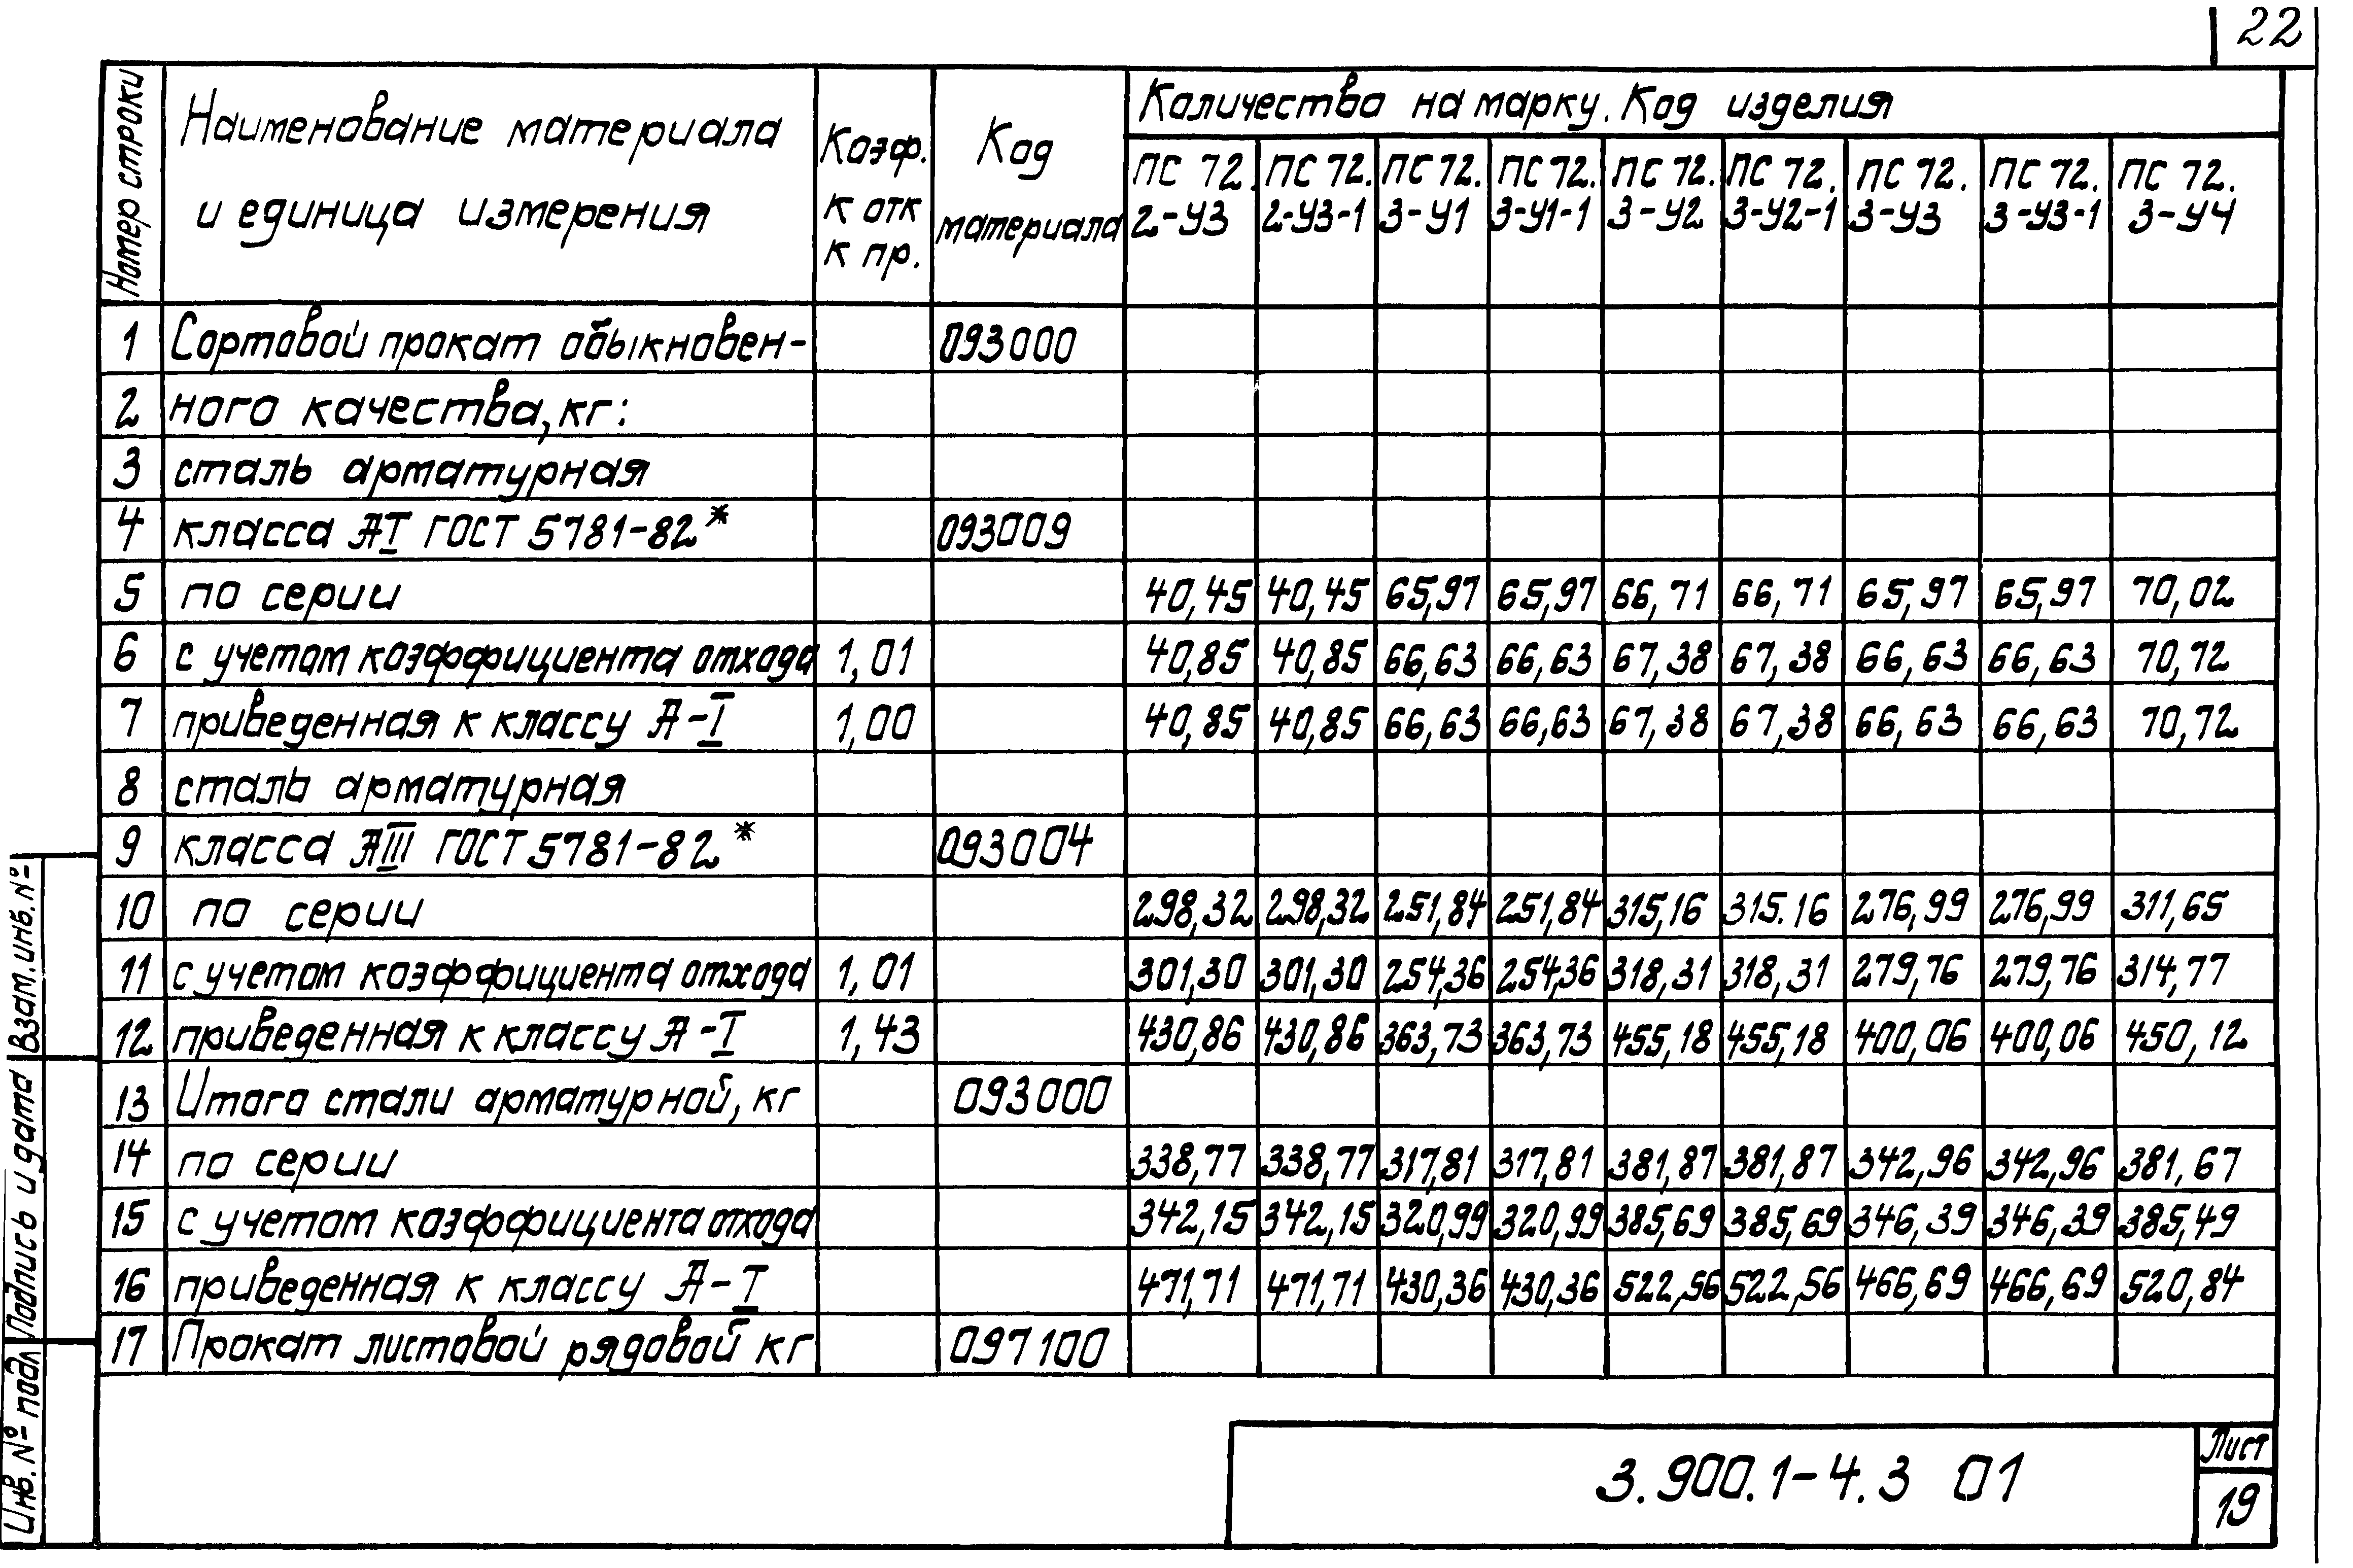 22
Номер строки
Наименование материала
и единица измерения
Коэф.
к отх
к пр.
Код
материала
Количество на марку. Код изделия
ПС 72. ПС 72. ПС 72. ПС 72. ПС 72. ПС 72. ПС 72. ПС 72. ПС 72.
2-У3 2-У3-1 3-У1 3-У1-1 3-У2 3-У2-1 3-У3 3-У3-1 3-У4
1 Сортовой прокат обыкновен- 093000
2 ного качества, кг:
3 сталь арматурная
4 класса АI ГОСТ 5781-82* 093009
5 по серии 40,45 40,45 65,97 65,97 66,71 66,71 65,97 65,97 70,02
6 с учетом коэффициента отхода 1,01 40,85 40,85 66,63 66,63 67,38 67,38 66,63 66,63 70,72
7 приведенная к классу А-I 1,00 40,85 40,85 66,63 66,63 67,38 67,38 66,63 66,63 70,72
8 сталь арматурная
9 класса АIII ГОСТ 5781-82* 093004
10 по серии 298,32 298,32 251,84 251,84 315,16 315.16 276,99 276,99 311,65
11 с учетом коэффициента отхода 1,01 301,30 301,30 254,36 254,36 318,31 318,31 279,76 279,76 314,77
12 приведенная к классу А-I 1,43 430,86 430,86 363,73 363,73 455,18 455,18 400,06 400,06 450,12
13 Итого стали арматурной, кг 093000
14 по серии 338,77 338,77 317,81 317,81 381,87 381,87 342,96 342,96 381,67
15 с учетом коэффициента отхода 342,15 342,15 320,99 320,99 385,69 385,69 346,39 346,39 385,49
16 приведенная к классу А-I 471,71 471,71 430,36 430,36 522,56 522,56 466,69 466,69 520,84
17 Прокат листовой рядовой кг 097100
Взам. инв. №
Подпись и дата
Инв. № подл
3.900.1-4.3 01
Лист
19